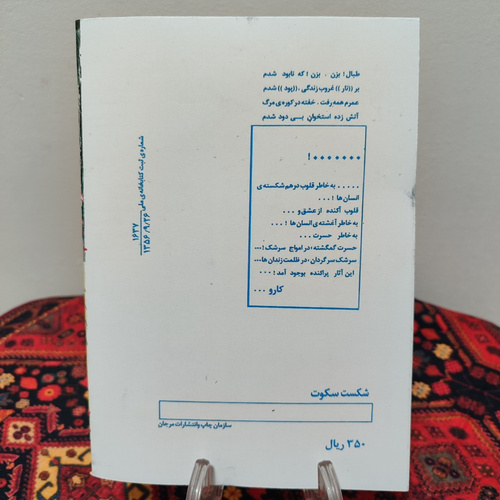 طبال ! بزن . بزن ! که نابود شدم
بر ((تار )) غروب زندگی . ((پود )) شدم
عمرم همه رفت . خفته در کوره ی مرگ
آتش زده استخوان بــی دود شدم
••••••• !
..... به خاطر قلوب درهم شکسته ی
انسان ها ! ...
قلوب آکنده از عشق و ...
به خاطر آغشته ی انسان ها ! ...
به خاطر حسرت ...
حسرت گمگشته ، در امواج سرشک ! ...
سرشک سرگردان ، در ظلمت زندان ها ...
این آثار پراکنده بوجود آمد ! ...
کارو ...
شماره ی ثبت کتابخانه ی ملی ۱۶۳۷
۱۳۵۶/۹/۲۶
شکست سکوت
سازمان چاپ وانتشارات مرجان
۳۵۰ ریال